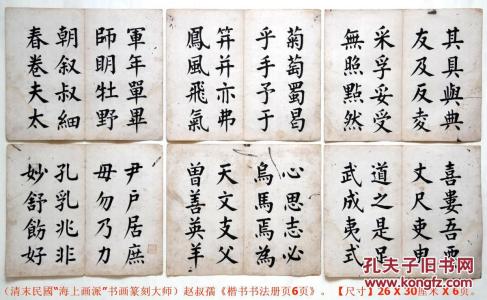 其具與典
友及反夌
采孚妥受
無照點然
菊萄蜀曷
乎手予于
笄并亦弗
鳳風飛氣
軍年單畢
師明牡野
朝叙叔細
春卷夫太
喜婁吾
丈尺吏
道之是足
武成夷式
心思志必
烏馬焉為
天文支父
曽善英羊
尹戶居庶
毋勿乃力
孔乳兆非
妙舒飭好
(清末民國“海上画派”书画篆刻大师）赵叔孺《楷书书法册页6页》。【尺寸】26 X 30厘米 X 6页。